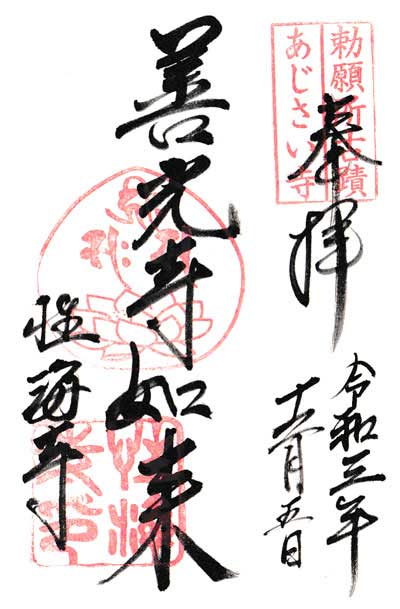 勅願所古蹟
あじさい寺
奉拝
令和三年
十二月五日
善光寺如来
性海寺